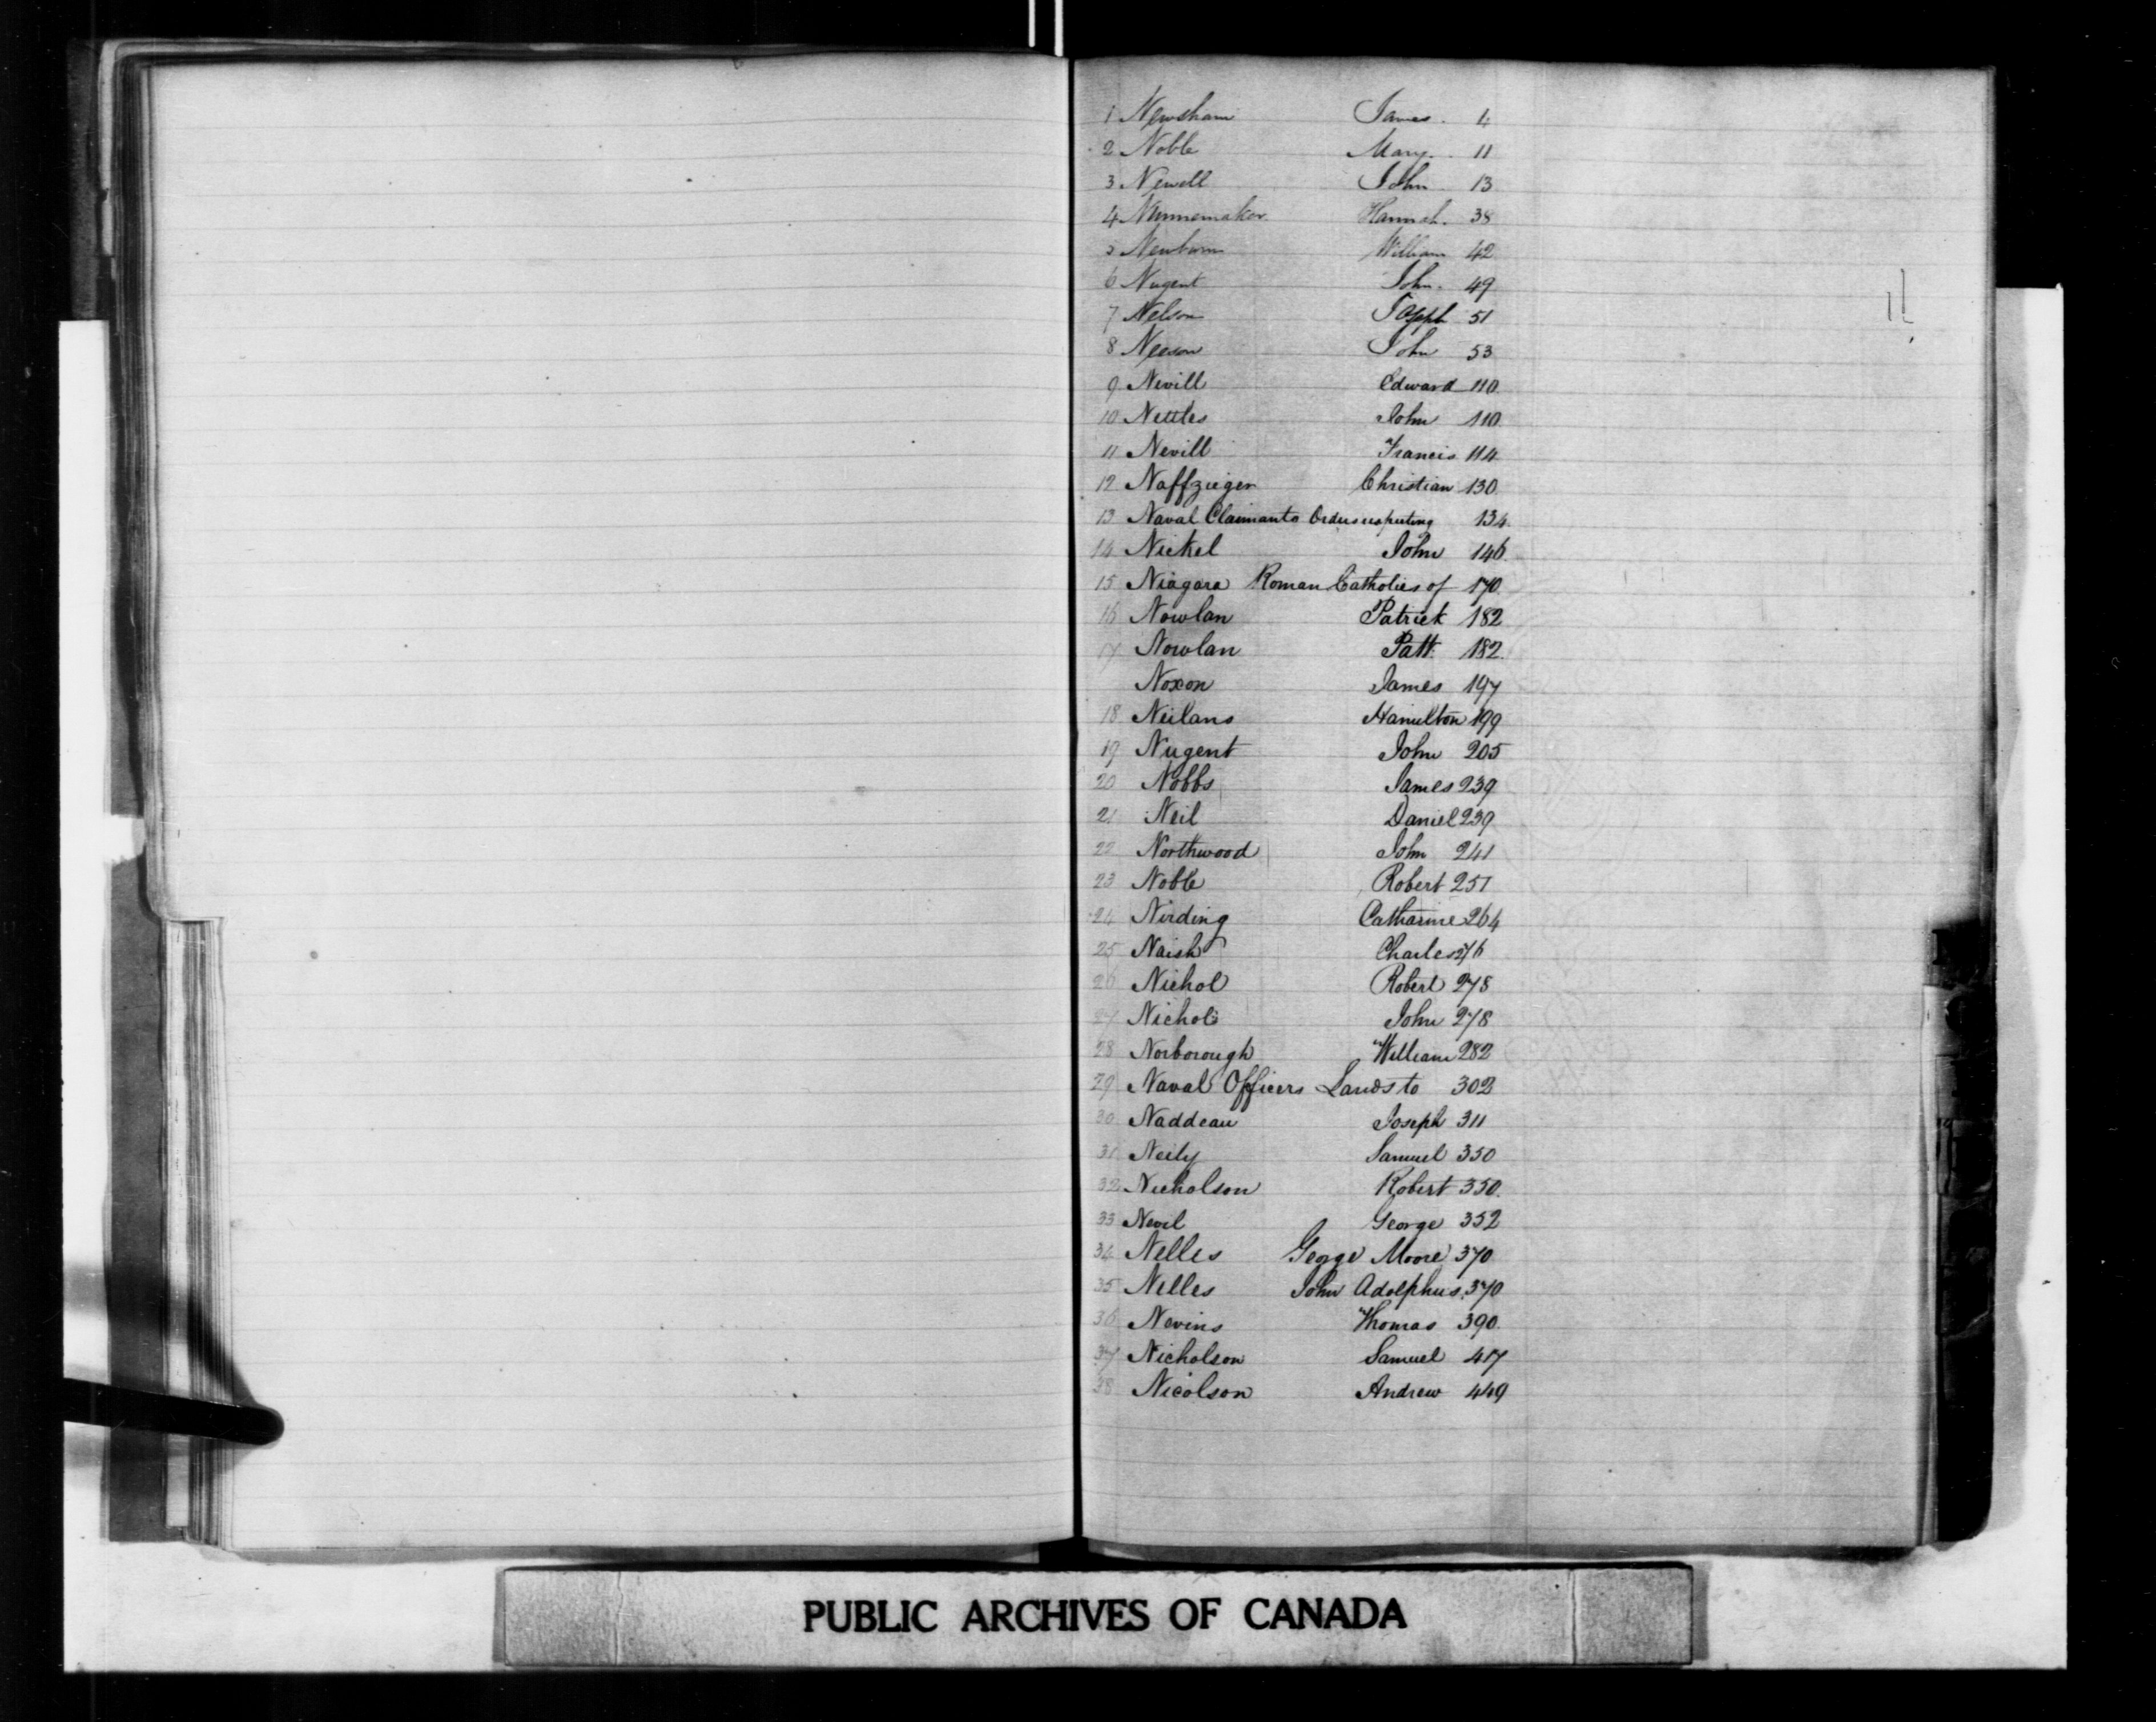 1 Newsham James. 4
2 Noble Mary. 11
3 Newell John 13
4 Nunnemaker Hannah. 38
5 Newburn William 42
6 Nugent John. 49
7 Nelson Joseph 51
8 Neeson John 53
9 Nevill Edward 110.
10 Nettles John 110.
11 Nevill Francis 114
12 Naffzieger Christian 130.
13 Naval Claimants Orders respecting 134.
14 Nickel John 146.
15 Niagara Roman Catholics of 170.
16 Nowlan Patrick 182
17 Nowlan Patt. 182.
Noxon James 197
18 Neilans Hamilton 199
19 Nugent John 205
20 Nobbs James 239
21 Neil Daniel 239
22 Northwood John 241
23 Noble Robert 251
24 Nirding Catharine 264
25 Naish Charles 276
26 Nichol Robert 278
27 Nichols John 278
28 Norborough William 282
29 Naval Officers Lands to 302
30 Naddeau Joseph 311
31 Neily Samuel 350
32 Nicholson Robert 350.
33 Nevil George 352
34 Nelles George Moore 370
35 Nelles John Adolphus. 370
36 Nevins Thomas 390.
37 Nicholson Samuel 417
38 Nicolson Andrew 449
PUBLIC ARCHIVES OF CANADA